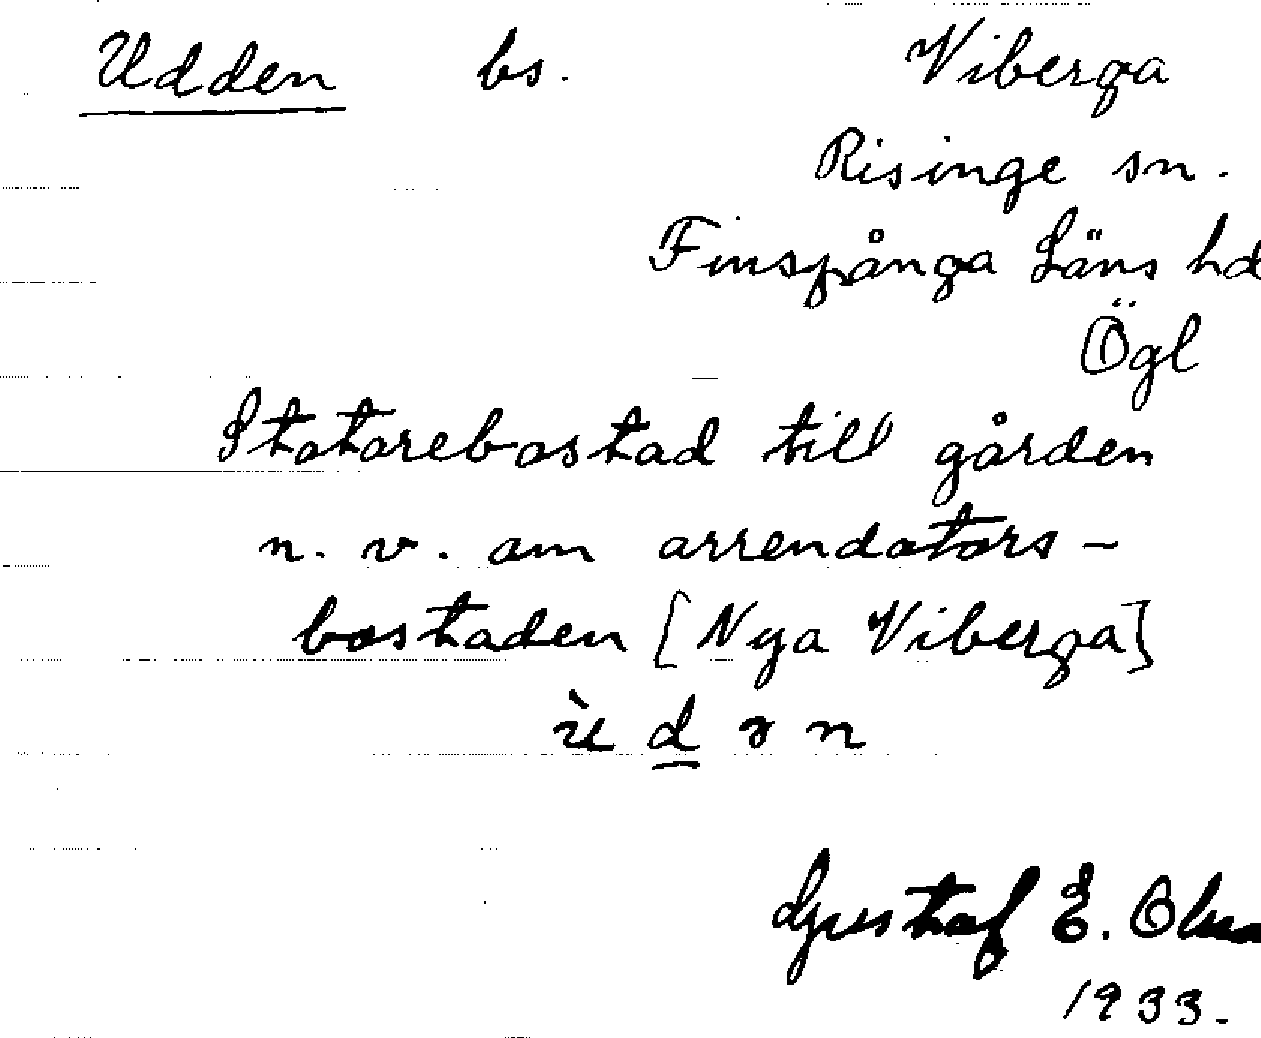 Udden bs. Viberga
Risinge sn.
Finspånga Läns hd
Ögl
Statarebostad till gården
n. v. om arrendators-
bostaden [Nya Viberga]
Gustaf E.
1933.